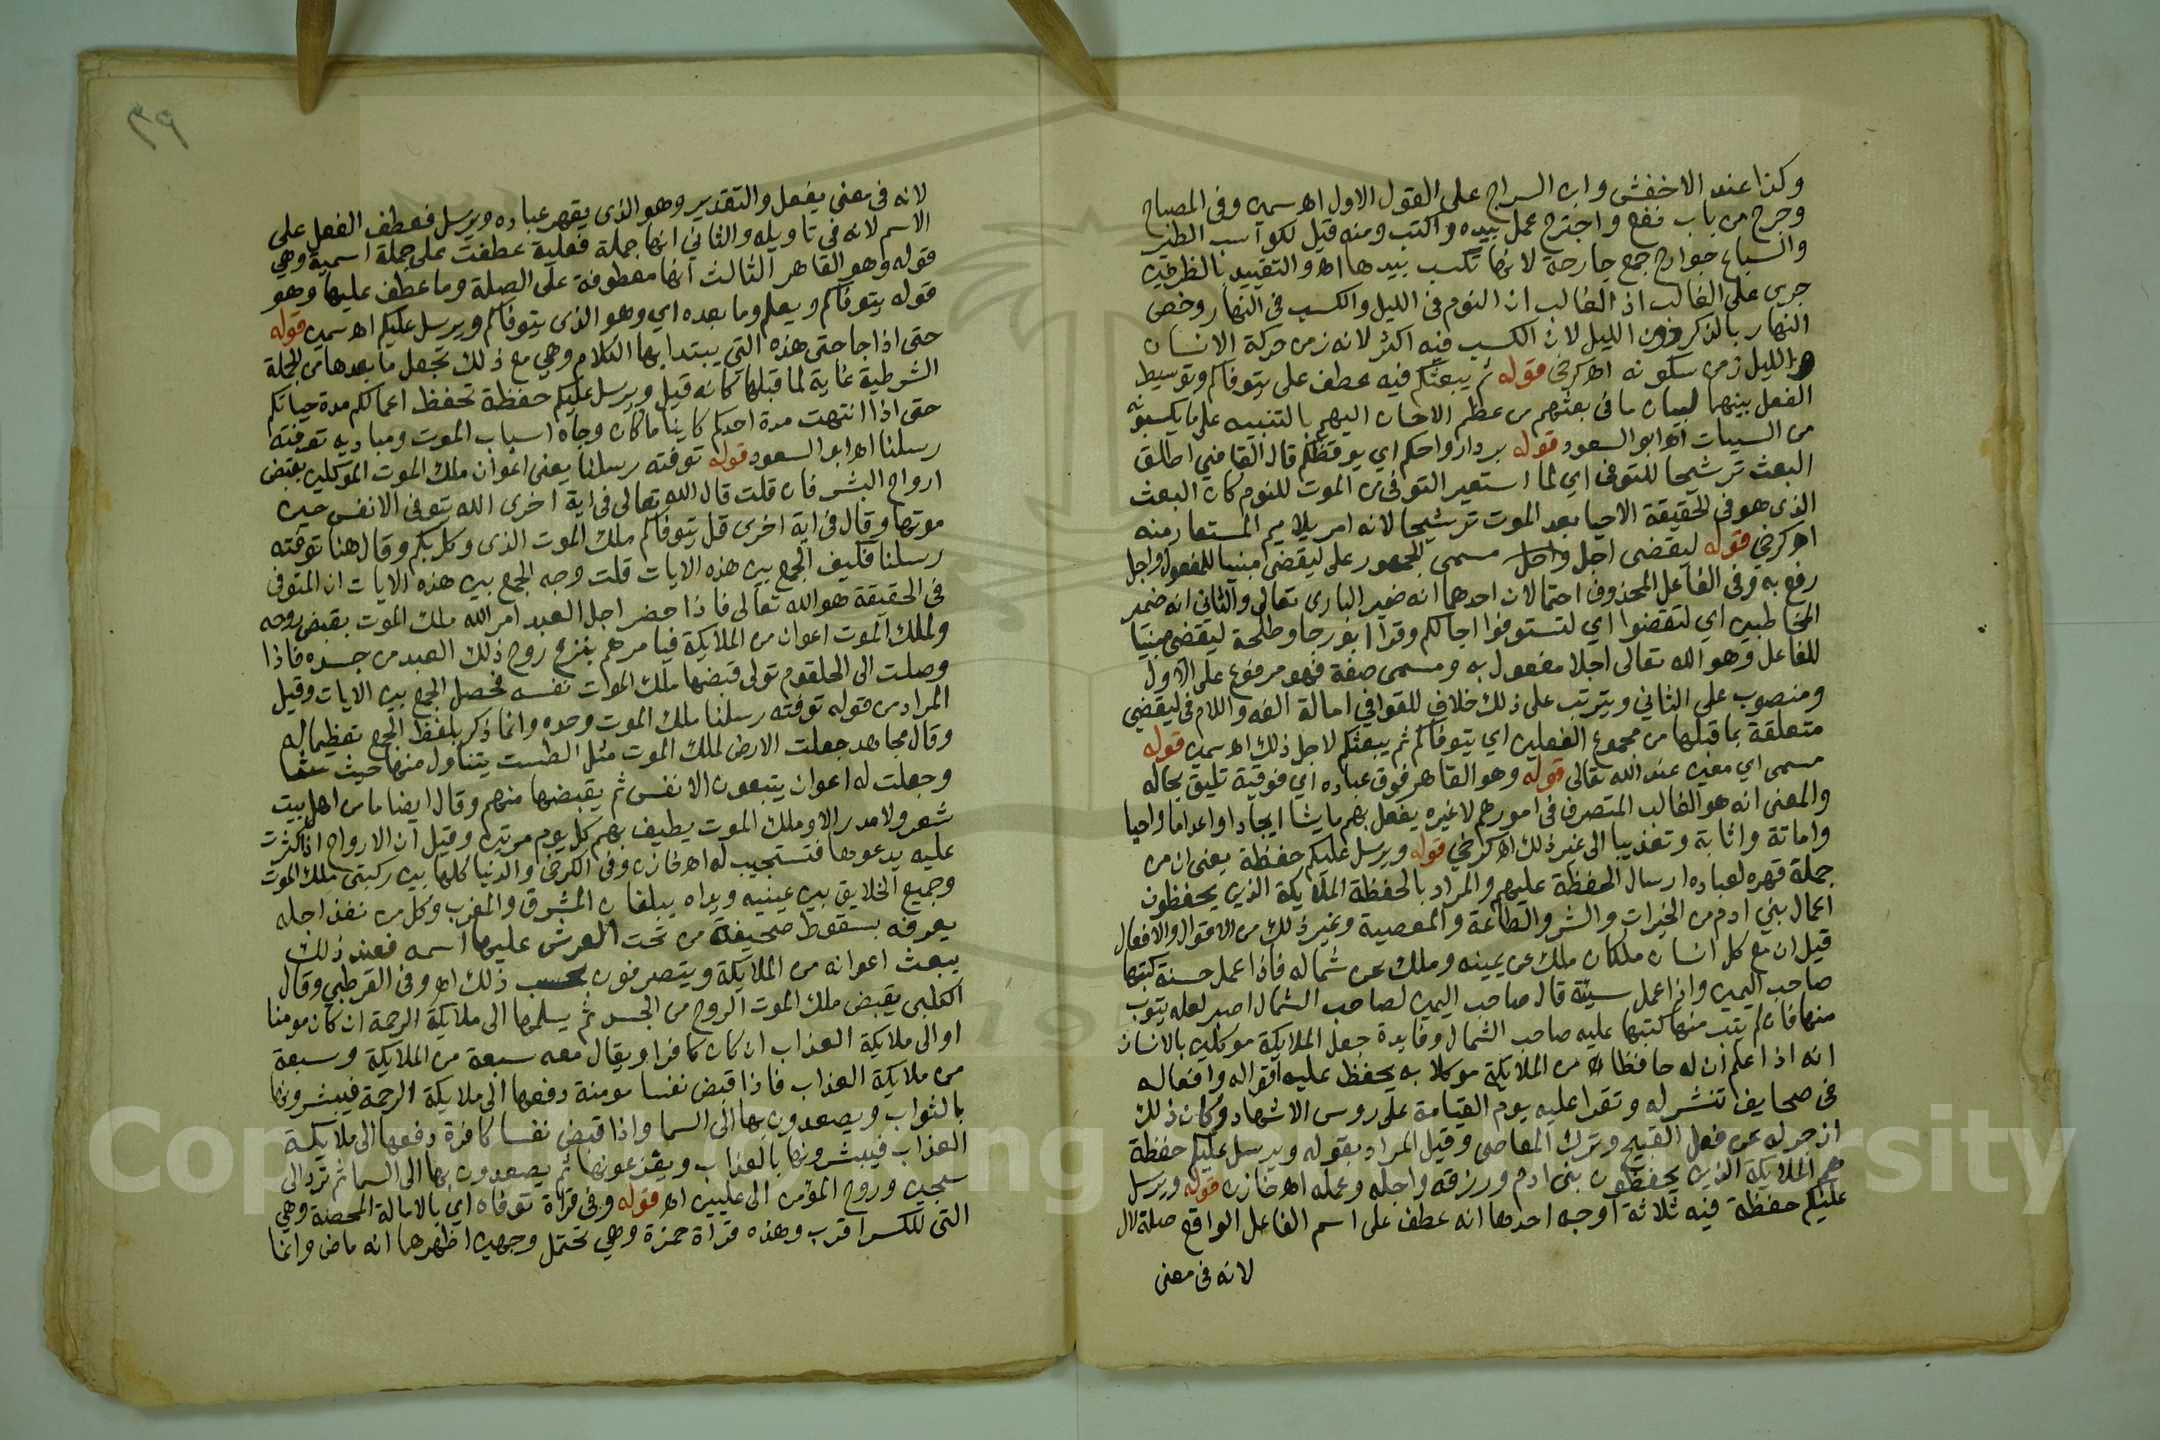 وكذا عند الاخفش وابن السراج على القول الاول اه سمين وفي المصباح
وجرح من باب نفع واجترح عمل بيده واكتسب ومنه قيل لكواسب الطير
والسباع جوارح جمع جارحة لانها تكسب بيدها اه والتقييد بالظرفين
جرى على الغالب اذ الغالب ان النوم في الليل والكسب في النهار وخص
النهار بالذكر دون الليل لان الكسب فيه اكثر لانه زمن حركة الانسان
والليل زمن سكونه اه كرخي قوله ثم يبعثكم فيه عطف على يتوفاكم وتوسيط
الفعل بينهما لبيان ما في بعثهم من عظم الاحسان اليهم بالتنبيه على ما يكسبونه
من السيات اه ابو السعود قوله برد ارواحكم اي يوقظكم قال القاضي اطلق
البعث ترشيحا للتوفي اي لما استعير التوفي من الموت للنوم كان البعث
الذي هو في الحقيقة الاحيا بعد الموت ترشيحا لانه امر يلايم المستعار منه
اه كرخي قوله ليقضى اجل واجل مسمى الجمهور على ليقضى مبنيا للمفعول واجل
رفع به وفي الفاعل المحذوف احتمالان احدهما انه ضمير الباري تعالى والثاني انه ضمير
المخاطبين اي لتقضوا اي لتستوفوا اجالكم وقرا ابو رجا وطلحة ليقضي مبنيا
للفاعل وهو الله تعالى اجلا مفعول به ومسمى صفة فهو مرفوع على الاول
ومنصوب على الثاني ويترتب على ذلك خلاف للقوافي امالة الفه واللام في ليقضي
متعلقة بما قبلها من مجموع الفعلين اي يتوفاكم ثم يبعثكم لاجل ذلك اه سمين قوله
مسمى اي معين عند الله تعالى قوله وهو القاهر فوق عباده اي فوقية تليق بحاله
والمعنى انه هو الغالب المتصرف في امورهم لا غيره يفعل بهم ما يشا ايجادا واعداما واحيا
واماتة واثابة وتعذيبا الى غير ذلك اه كرخي قوله ويرسل عليكم حفظة يعني ان من
جملة قهره لعباده ارسال الحفظة عليهم والمراد بالحفظة الملايكة الذين يحفظون
اعمال بني ادم من الخيرات والشر والطاعة والمعصية وغير ذلك من الاقوال والافعال
قيل ان مع كل انسان ملكان ملك عن يمينه وملك عن شماله فاذا عمل حسنة كتبها
صاحب اليمين واذا عمل سيئة قال صاحب اليمين لصاحب الشمال اصبر لعله يتوب
منها فان لم يتب منها كتبها عليه صاحب الشمال وفايدة جعل الملايكة موكلين بالانسان
انه اذا علم ان له حافظا من الملايكة موكلا به يحفظ عليه اقواله وافعاله
في صحايف تنشر له وتقرا عليه يوم القيامة على روس الاشهاد وكان ذلك
ازجر له عن فعل القبيح وترك المعاصي وقيل المراد بقوله ويرسل عليكم حفظة
هم الملايكة الذين يحفظون بني ادم ورزقه واجله وعمله اه خازن قوله ويرسل
عليكم حفظة فيه ثلاثة اوجه احدها انه عطف على اسم الفاعل الواقع صلة لال
لانه في معنى
٣٩
لانه في معنى يفعل والتقدير وهو الذي يقهر عباده ويرسل فعطف الفعل على
الاسم لانه في تاويله والثاني انها جملة فعلية عطفت على جملة اسمية وهي
قوله وهو القاهر الثالث انها معطوفة على الصلة وما عطف عليها وهو
قوله يتوفاكم ويعلم وما بعده اي وهو الذي يتوفاكم ويرسل عليكم اه سمين قوله
حتى اذا جا حتى هذه التي يبتدا بها الكلام وهي مع ذلك تجعل ما بعدها من الجملة
الشرطية غاية لما قبلها كانه قيل ويرسل عليكم حفظة تحفظ اعمالكم مدة حياتكم
حتى اذا انتهت مدة احدكم كاينا ما كان وجاه اسباب الموت ومباديه توفته
رسلنا اه ابو السعود قوله توفته رسلنا يعني اعوان ملك الموت الموكلين بقبض
ارواح البشر فان قلت قال الله تعالى في اية اخرى الله يتوفى الانفس حين
موتها وقال في اية اخرى قل يتوفاكم ملك الموت الذي وكل بكم وقال هنا توفته
رسلنا فكيف الجمع بين هذه الايات قلت وجه الجمع بين هذه الايات ان المتوفي
في الحقيقة هو الله تعالى فاذا حضر اجل العبد امر الله ملك الموت بقبض روحه
ولملك الموت اعوان من الملايكة فيامرهم بنزع روح ذلك العبد من جسده فاذا
وصلت الى الحلقوم تولى قبضها ملك الموت نفسه فحصل الجمع بين الايات وقيل
المراد من قوله توفته رسلنا ملك الموت وحده وانما ذكر بلفظ الجمع تعظيما له
وقال مجاهد جعلت الارض لملك الموت مثل الطست يتناول منها حيث شا
وجعلت له اعوان يتبعون الانفس ثم يقبضها منهم وقال ايضا ما من اهل بيت
شعر ولا مدر الا وملك الموت يطيف بهم كل يوم مرتين وقيل ان الارواح اذا كثرت
عليه يدعوها فتستجيب له اه خازن وفي الكرخي والدنيا كلها بين ركبتي ملك الموت
وجميع الخلايق بين عينيه ويداه يبلغان المشرق والمغرب وكل من نفذ اجله
يعرفه بسقوط صحيفة من تحت العرش عليها اسمه فعند ذلك
يبعث اعوانه من الملايكة ويتصرفون بحسب ذلك اه وفي القرطبي وقال
الكلبي يقبض ملك الموت الروح من الجسد ثم يسلمها الى ملايكة الرحمة ان كان مومنا
او الى ملايكة العذاب ان كان كافرا ويقال معه سبعة من الملايكة وسبعة
من ملايكة العذاب فاذا قبض نفسا مومنة دفعها الى ملايكة الرحمة فيبشرونها
بالثواب ويصعدون بها الى السما واذا قبض نفسا كافرة دفعها الى ملايكة
العذاب فيبشرونها بالعذاب ويفزعونها ثم يصعدون بها الى السما ثم ترد الى
سجين وروح المؤمن الى عليين اه قوله وفي قراة توفاه اي بالامالة المحضة وهي
التي للكسر اقرب وهذه قراة حمزة وهي تحتمل وجهين اظهرهما انه ماض وانما